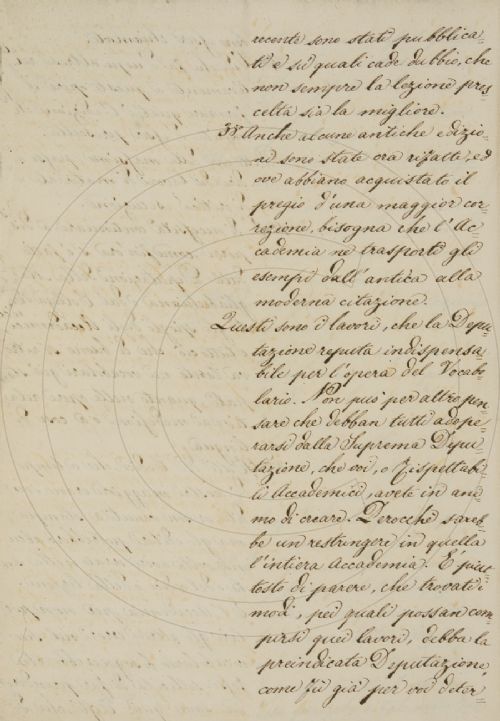 recente sono stati pubblica=
ti e su quali cade dubbio, che
non sempre la lezione pres=
celta sia la migliore.
38. Anche alcune antiche edizio=
ni sono state ora rifatte, ed
ove abbiano acquistato il
pregio d'una maggior cor=
rezione, bisogna che l'Ac=
cademia ne trasporti gli
esempi dall'antica alla
moderna citazione.
Questi sono i lavori, che la Depu=
tazione reputa indispensa=
bile per l'opera del Vocabo=
lario. Non può per altro pen=
sare che debban tutti adope=
rarsi dalla Suprema Depu=
tazione, che voi, o Rispettabi=
li Accademici, avete in ani=
mo di creare. Perocchè sareb=
be un restringere in quella
l'intiera Accademia. È piut=
tosto di parere, che trovati i
modi, pei quali possan com=
pirsi quei lavori, debba la
preindicata Deputazione,
come fu già per voi deter=